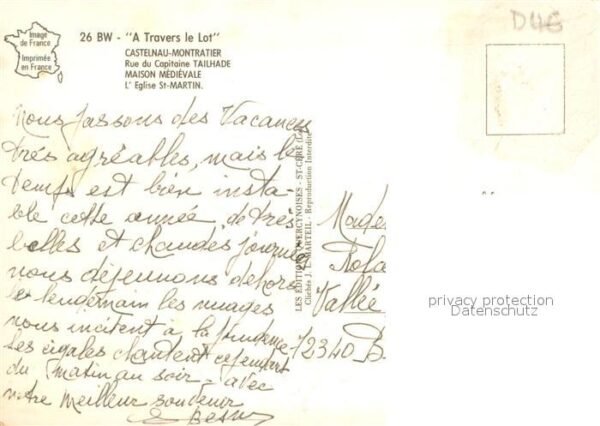 Image
de France
Imprimée
en France
26 BW - "A Travers le Lot"
CASTELNAU-MONTRATIER
Rue du Capitaine TAILHADE
MAISON MÉDIÉVALE
L' Eglise St-MARTIN.
D46
Nous passons des Vacances
très agréables, mais le
temps est bien insta-
ble cette année, de très
belles et chaudes journées
nous déjeunons dehors
le lendemain les nuages
nous incitent à la prudence
Les cigales chantent cependant
du matin au soir, avec
notre meilleur souvenir
LES ÉDITIONS QUERCYNOISES - ST-CÉRÉ (Lot)
Clichés J. L. MARTEIL - Reproduction Interdite
Made
Rola
Vallée
72340
privacy protection
Datenschutz